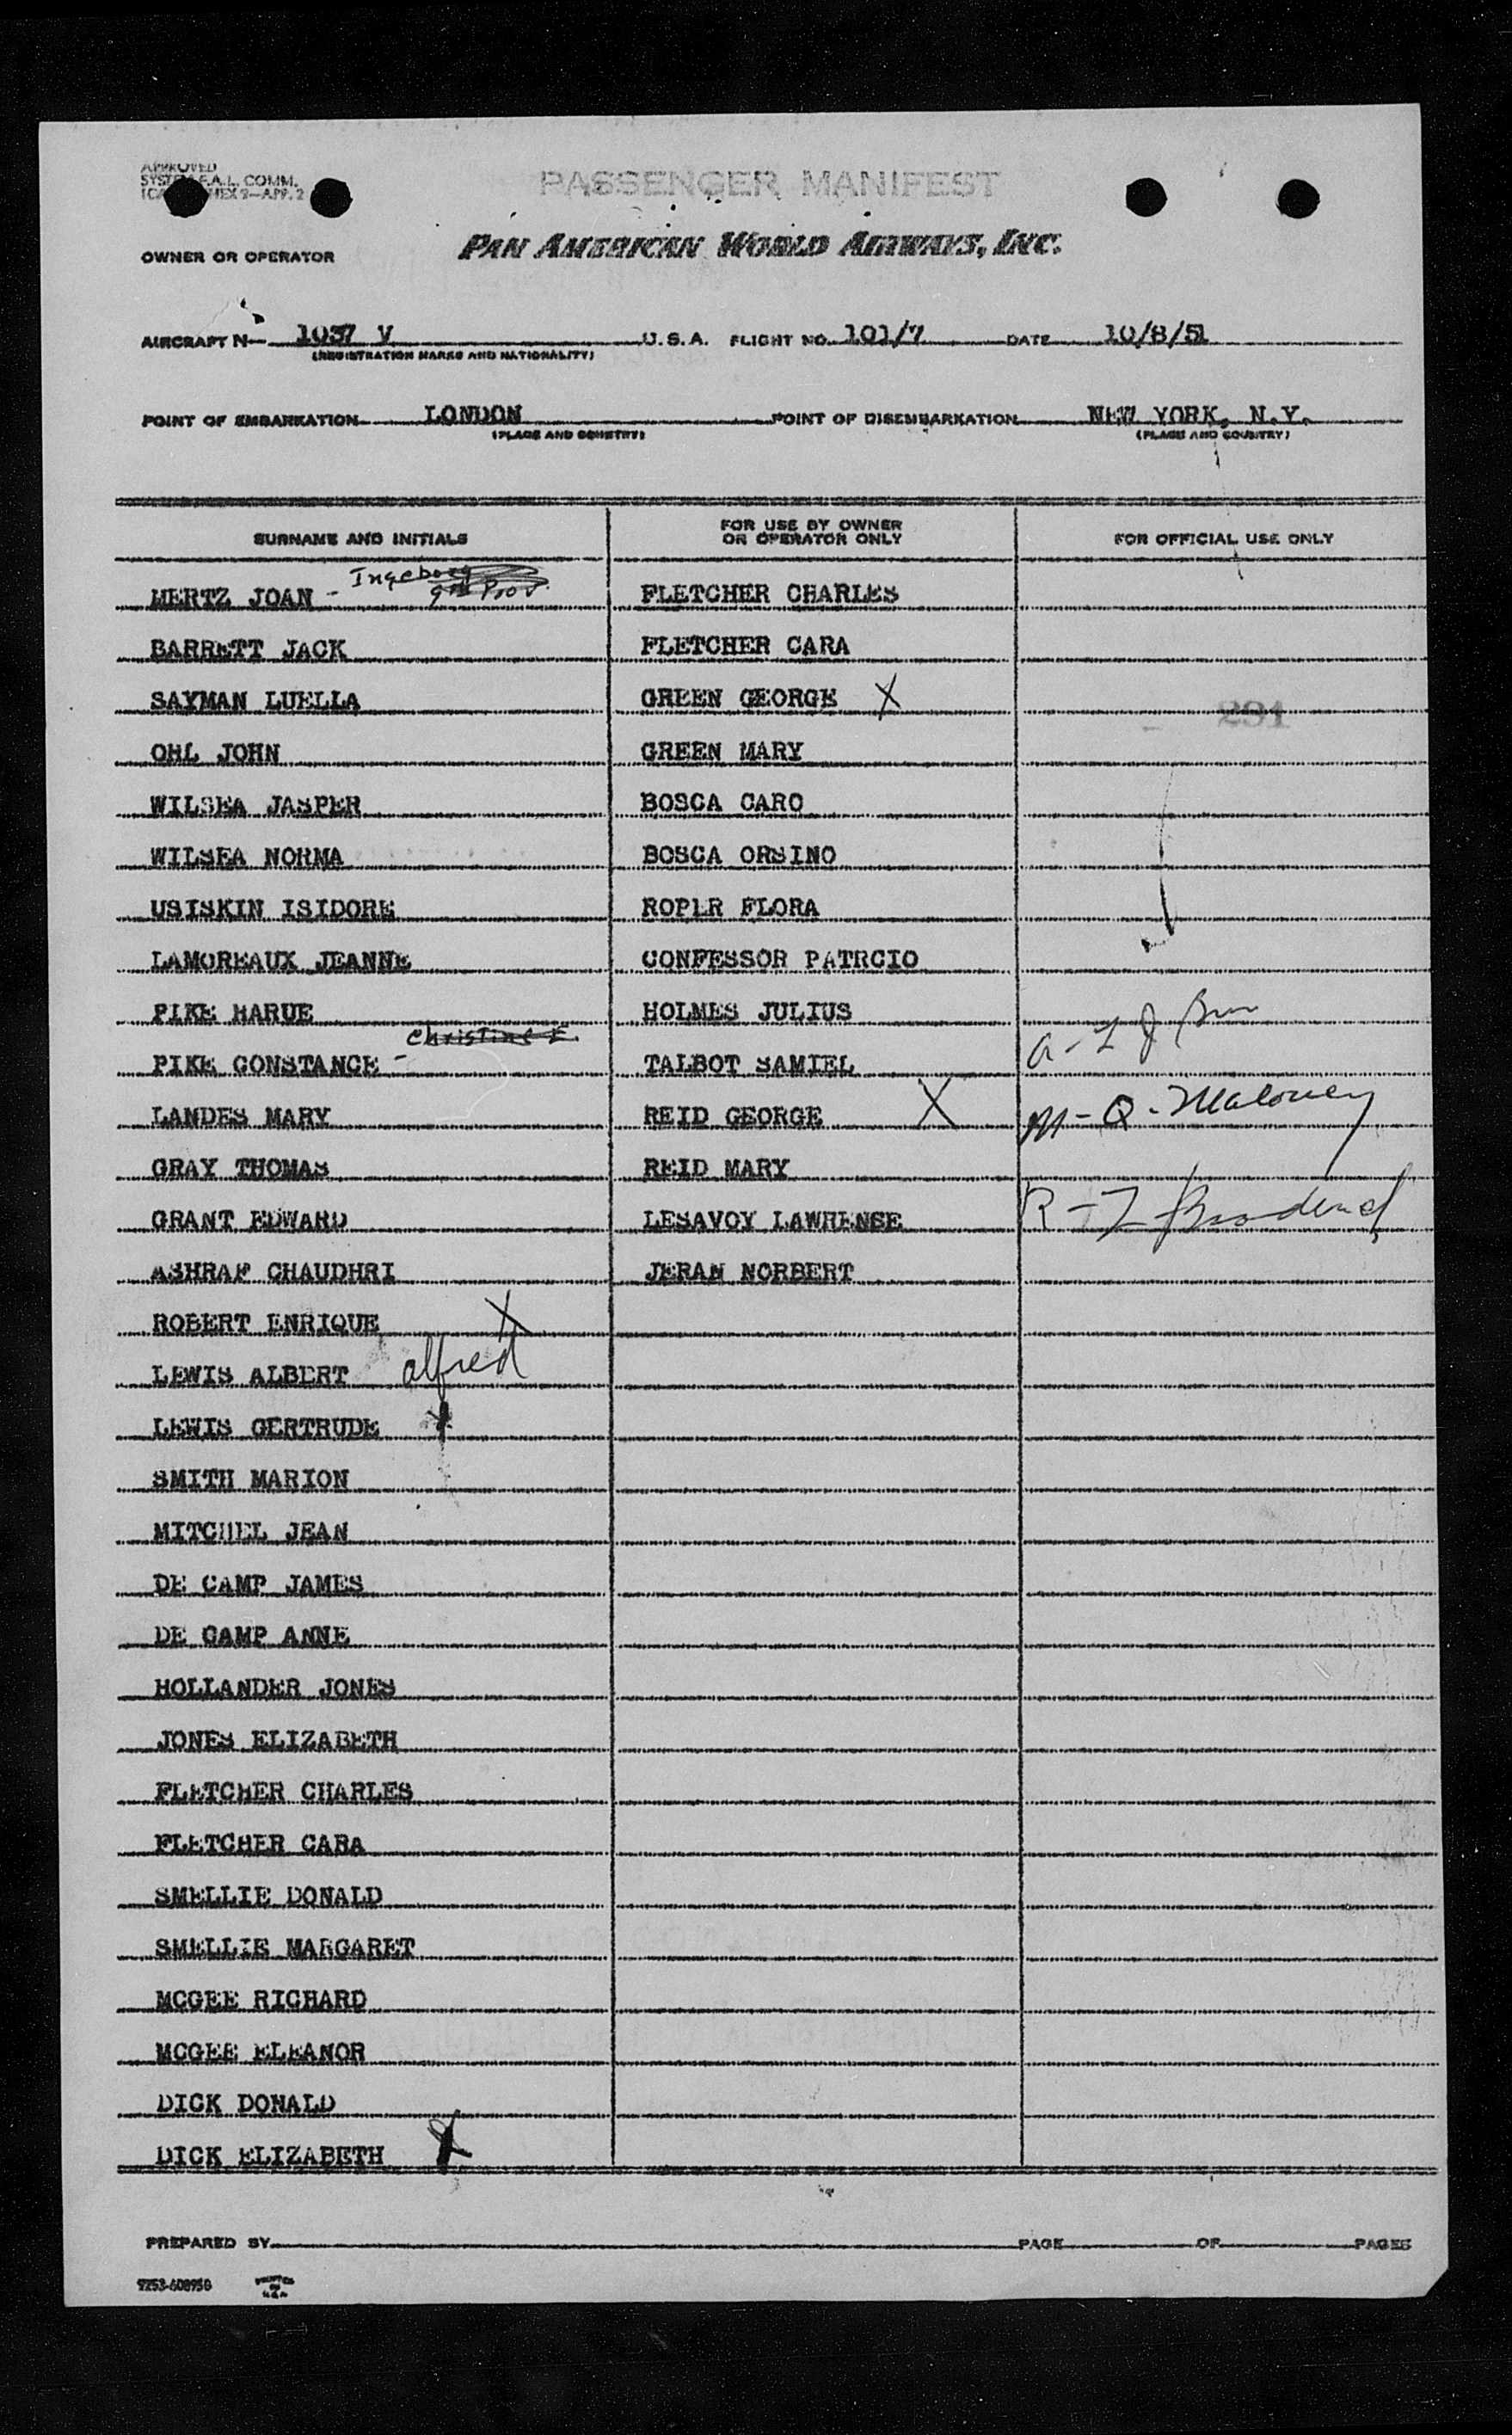 APPROVED
SYSTEM F.A.L. COMM.
9—APP. 2
PASSENGER MANIFEST
OWNER OR OPERATOR PAN AMERICAN WORLD AIRWAYS, INC.
AIRCRAFT N— 1037 V U.S.A. FLIGHT NO. 101/7 DATE 10/8/51
(REGISTRATION MARKS AND NATIONALITY)
POINT OF EMBARKATION LONDON POINT OF DISEMBARKATION NEW YORK, N.Y.
(PLACE AND COUNTRY) (PLACE AND COUNTRY)
SURNAME AND INITIALS
FOR USE BY OWNER
OR OPERATOR ONLY
FOR OFFICIAL USE ONLY
MERTZ JOAN - Ingeborg
BARRETT JACK
SAYMAN LUELLA
OHL JOHN
WILSEA JASPER
WILSEA NORMA
USISKIN ISIDORE
LAMOREAUX JEANNE
PIKE HARUE
PIKE CONSTANCE - Christine E.
LANDES MARY
GRAY THOMAS
GRANT EDWARD
ASHRAF CHAUDHRI
ROBERT ENRIQUE X
LEWIS ALBERT alfred
LEWIS GERTRUDE
SMITH MARION
MITCHEL JEAN
DE CAMP JAMES
DE CAMP ANNE
HOLLANDER JONES
JONES ELIZABETH
FLETCHER CHARLES
FLETCHER CARA
SMELLIE DONALD
SMELLIE MARGARET
MCGEE RICHARD
MCGEE ELEANOR
DICK DONALD
DICK ELIZABETH X
FLETCHER CHARLES
FLETCHER CARA
GREEN GEORGE X
GREEN MARY
BOSCA CARO
BOSCA ORSINO
ROPER FLORA
CONFESSOR PATRCIO
HOLMES JULIUS
TALBOT SAMIEL
REID GEORGE X
REID MARY
LESAVOY LAWRENSE
JERAN NORBERT
291
M - Q - Maloney
PREPARED BY PAGE OF PAGES
9253-608950
PRINTED
IN
U.S.A.